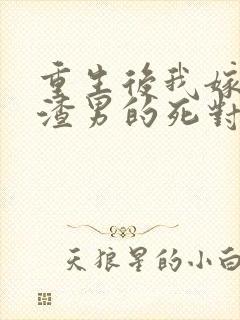 重生後我嫁
渣男的死對
天狼星的小白